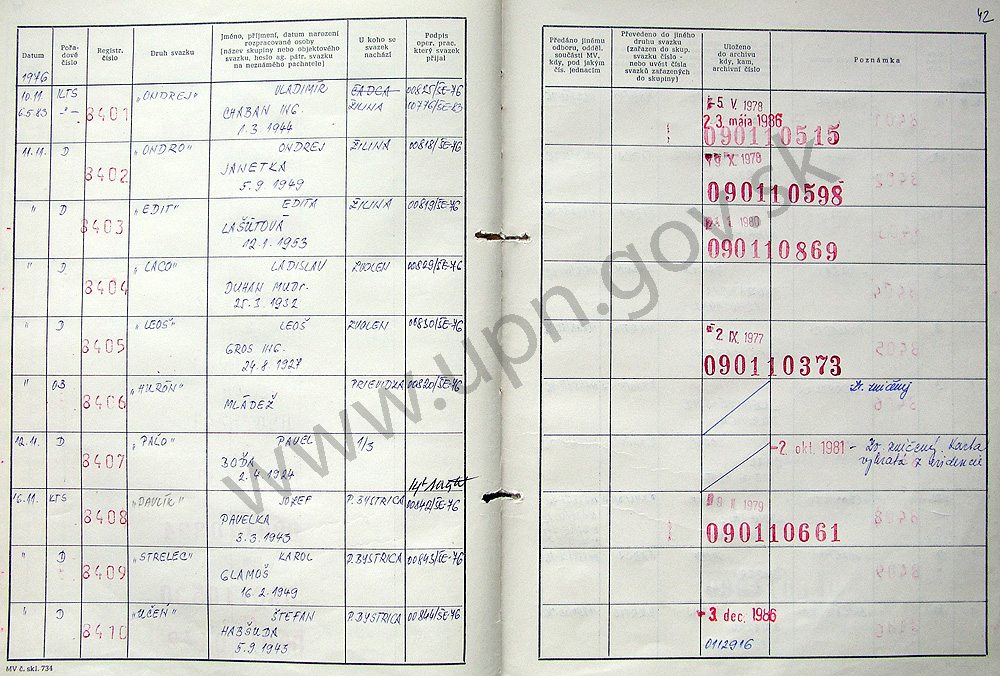 42
Datum
Pořadové číslo
Registr. číslo
Druh svazku
Jméno, příjmení, datum narození rozpracované osoby
(název skupiny nebo objektového svazku, heslo ag. pátr. svazku na neznámého pachatele)
U koho se svazek nachází
Podpis oper. prac. který svazek přijal
Předáno jinému odboru, odděl. součásti MV, kdy, pod jakým čís. jednacím
Převedeno do jiného druhu svazku (zařazen do skup. svazku číslo - nebo uvést čísla svazků zařazených do skupiny)
Uloženo do archivu kdy, kam, archivní číslo
Poznámka
1976
10.11. KTS 8401 „ONDREJ" VLADIMIR ČADCA 00825/ŠE-76
6.5.83 -"- CHABAN ING. ŽILINA 00776/ŠE-83
1.3.1944
5. V. 1978
23. mája 1986
090110515
11.11. D 8402 „ONDRO" ONDREJ ŽILINA 00818/ŠE-76
JANETKA
5.9.1949
X. 1978
090110598
" D 8403 „EDIT" EDITA ŽILINA 00819/ŠE-76
LAŠÚTOVÁ
12.1.1953
1980
090110869
" D 8404 „LACO" LADISLAV ZVOLEN 00829/ŠE-76
DUHAN MUDr.
25.3.1932
" D 8405 „LEOŠ" LEOŠ ZVOLEN 00830/ŠE-76
GROS ING.
24.8.1927
2. IX. 1977
090110373
" OB 8406 „HURÓN" PRIEVIDZA 00820/ŠE-76
MLÁDEŽ
Zv. zničený
12.11. D 8407 „PAĽO" PAVEL 1/3
BOĎA
2.4.1924
-2. okt. 1981 - Zv. zničený. Karta
vybratá z evidencie
16.11. KTS 8408 „DAVLÍK" JOZEF P. BYSTRICA 00842/ŠE-76
PAVELKA
3.3.1943
1979
090110661
" D 8409 „STRELEC" KAROL P. BYSTRICA 00843/ŠE-76
GLAMOŠ
16.2.1949
" D 8410 „UČEŇ" ŠTEFAN P. BYSTRICA 00844/ŠE-76
HABŠUDA
5.9.1943
-3. dec. 1986
0112916
MV č. skl. 734
www.upn.gov.sk